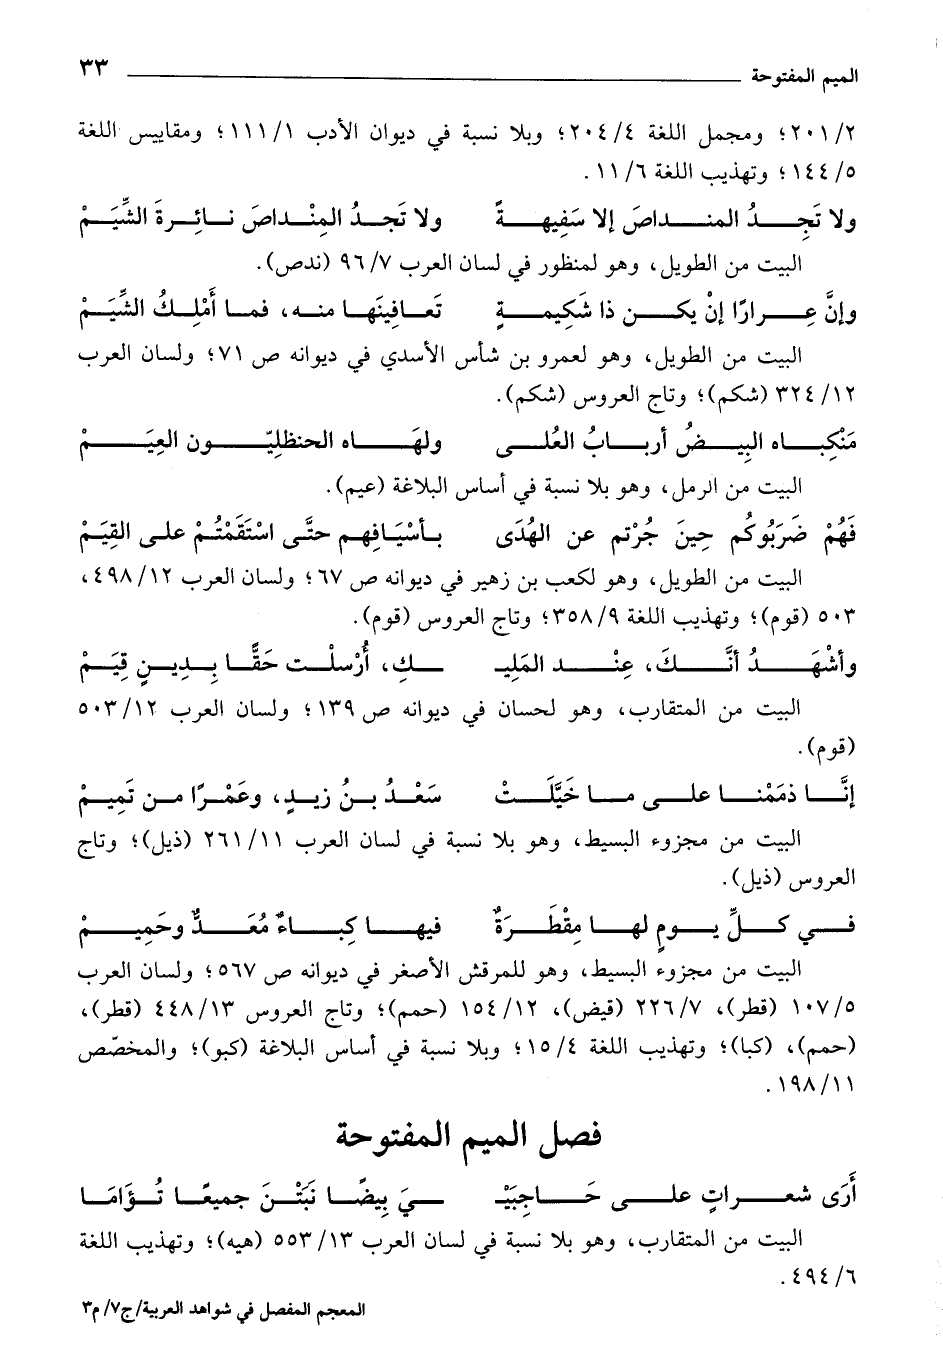 الميم المفتوحة ٣٣
٢٠١/٢؛ ومجمل اللغة ٢٠٤/٤؛ وبلا نسبة في ديوان الأدب ١١١/١؛ ومقاييس اللغة
١٤٤/٥؛ وتهذيب اللغة ١١/٦.
ولا تَجِدُ المنداصَ إلا سَفِيهةً ولا تَجِدُ المِنْداصَ نائِرةَ الشِّيَمْ
البيت من الطويل، وهو لمنظور في لسان العرب ٩٦/٧ (ندص).
وإنَّ عِرارًا إنْ يكن ذا شَكِيمةٍ تَعافِينَها منه، فما أَمْلِكُ الشِّيَمْ
البيت من الطويل، وهو لعمرو بن شأس الأسدي في ديوانه ص ٧١؛ ولسان العرب
٣٢٤/١٢ (شكم)؛ وتاج العروس (شكم).
مَنْكِباه البِيضُ أربابُ العُلى ولهَاه الحنظليّون العِيَمْ
البيت من الرمل، وهو بلا نسبة في أساس البلاغة (عيم).
فَهُمْ ضَرَبُوكُم حِينَ جُرْتم عن الهُدَى بأسْيَافِهم حتَّى اسْتَقَمْتُمْ على القِيَمْ
البيت من الطويل، وهو لكعب بن زهير في ديوانه ص ٦٧؛ ولسان العرب ٤٩٨/١٢،
٥٠٣ (قوم)؛ وتهذيب اللغة ٣٥٨/٩؛ وتاج العروس (قوم).
وأشْهَدُ أنَّكَ، عِنْد المَلِيـ ـكِ، أُرْسلْت حَقًّا بِدِينٍ قِيَمْ
البيت من المتقارب، وهو لحسان في ديوانه ص ١٣٩؛ ولسان العرب ٥٠٣/١٢
(قوم).
إنَّا ذمَمْنا على ما خَيَّلَتْ سَعْدُ بنُ زيدٍ، وعَمْرًا من تَمِيمْ
البيت من مجزوء البسيط، وهو بلا نسبة في لسان العرب ٢٦١/١١ (ذيل)؛ وتاج
العروس (ذيل).
في كلِّ يومٍ لها مِقْطَرَةٌ فيها كِباءٌ مُعَدٌّ وحَمِيمْ
البيت من مجزوء البسيط، وهو للمرقش الأصغر في ديوانه ص ٥٦٧؛ ولسان العرب
١٠٧/٥ (قطر)، ٢٢٦/٧ (قيض)، ١٥٤/١٢ (حمم)؛ وتاج العروس ٤٤٨/١٣ (قطر)،
(حمم)، (كبا)؛ وتهذيب اللغة ١٥/٤؛ وبلا نسبة في أساس البلاغة (كبو)؛ والمخصّص
١٩٨/١١.
فصل الميم المفتوحة
أَرَى شعراتٍ على حَاجِبَيْـ ـيَ بِيضًا نَبَتْنَ جميعًا تُؤَامَا
البيت من المتقارب، وهو بلا نسبة في لسان العرب ٥٥٣/١٣ (هيه)؛ وتهذيب اللغة
٤٩٤/٦.
المعجم المفصل في شواهد العربية/ج٧/م٣